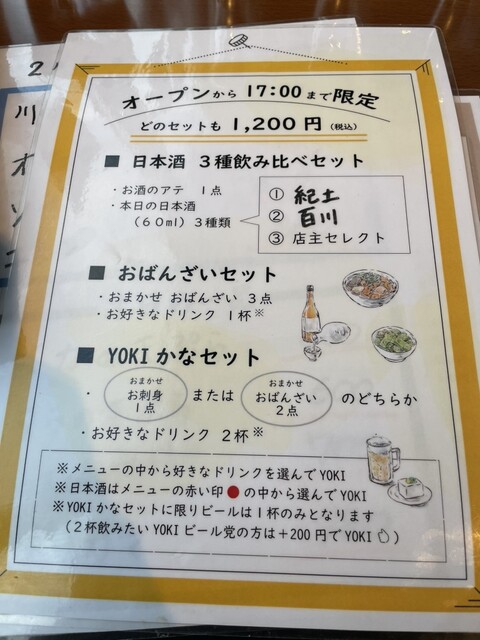 オープンから 17:00 まで 限定
どのセットも 1,200 円 (税込)
■ 日本酒 3種飲み比べセット
・お酒のアテ 1点
・本日の日本酒
(60ml) 3種類
① 紀土
② 百川
③ 店主セレクト
■ おばんざいセット
・おまかせ おばんざい 3点
・お好きなドリンク 1杯※
■ YOKI かなセット
・ おまかせ お刺身 1点 または おまかせ おばんざい 2点 のどちらか
・お好きなドリンク 2杯※
※メニューの中から好きなドリンクを選んで YOKI
※日本酒はメニューの赤い印●の中から選んで YOKI
※YOKI かなセットに限りビールは1杯のみとなります
(2杯飲みたい YOKI ビール党の方は+200 円で YOKI)
2
川
オ